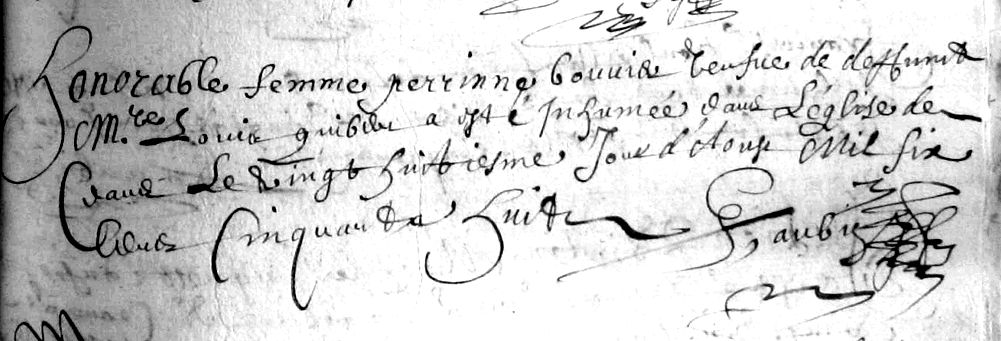 honorable femme perrinne bouvier veufue de deffunct
M.re Louis guibert a esté Inhumeé dans L'églize de
Le vingt huictiesme Jour d'Aoust Mil six
Cents Cinquante huict Gaubi